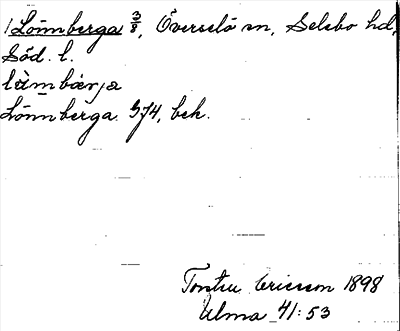 1 Lönnberga 3/8, Överselö sn, Selebo hd,
Söd. l.
Lönnberga. 574, bek.
Torsten Ericsson 1898
Ulma 41:53